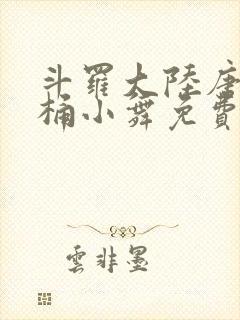 斗羅大陸唐
桶小舞免費
雲非墨